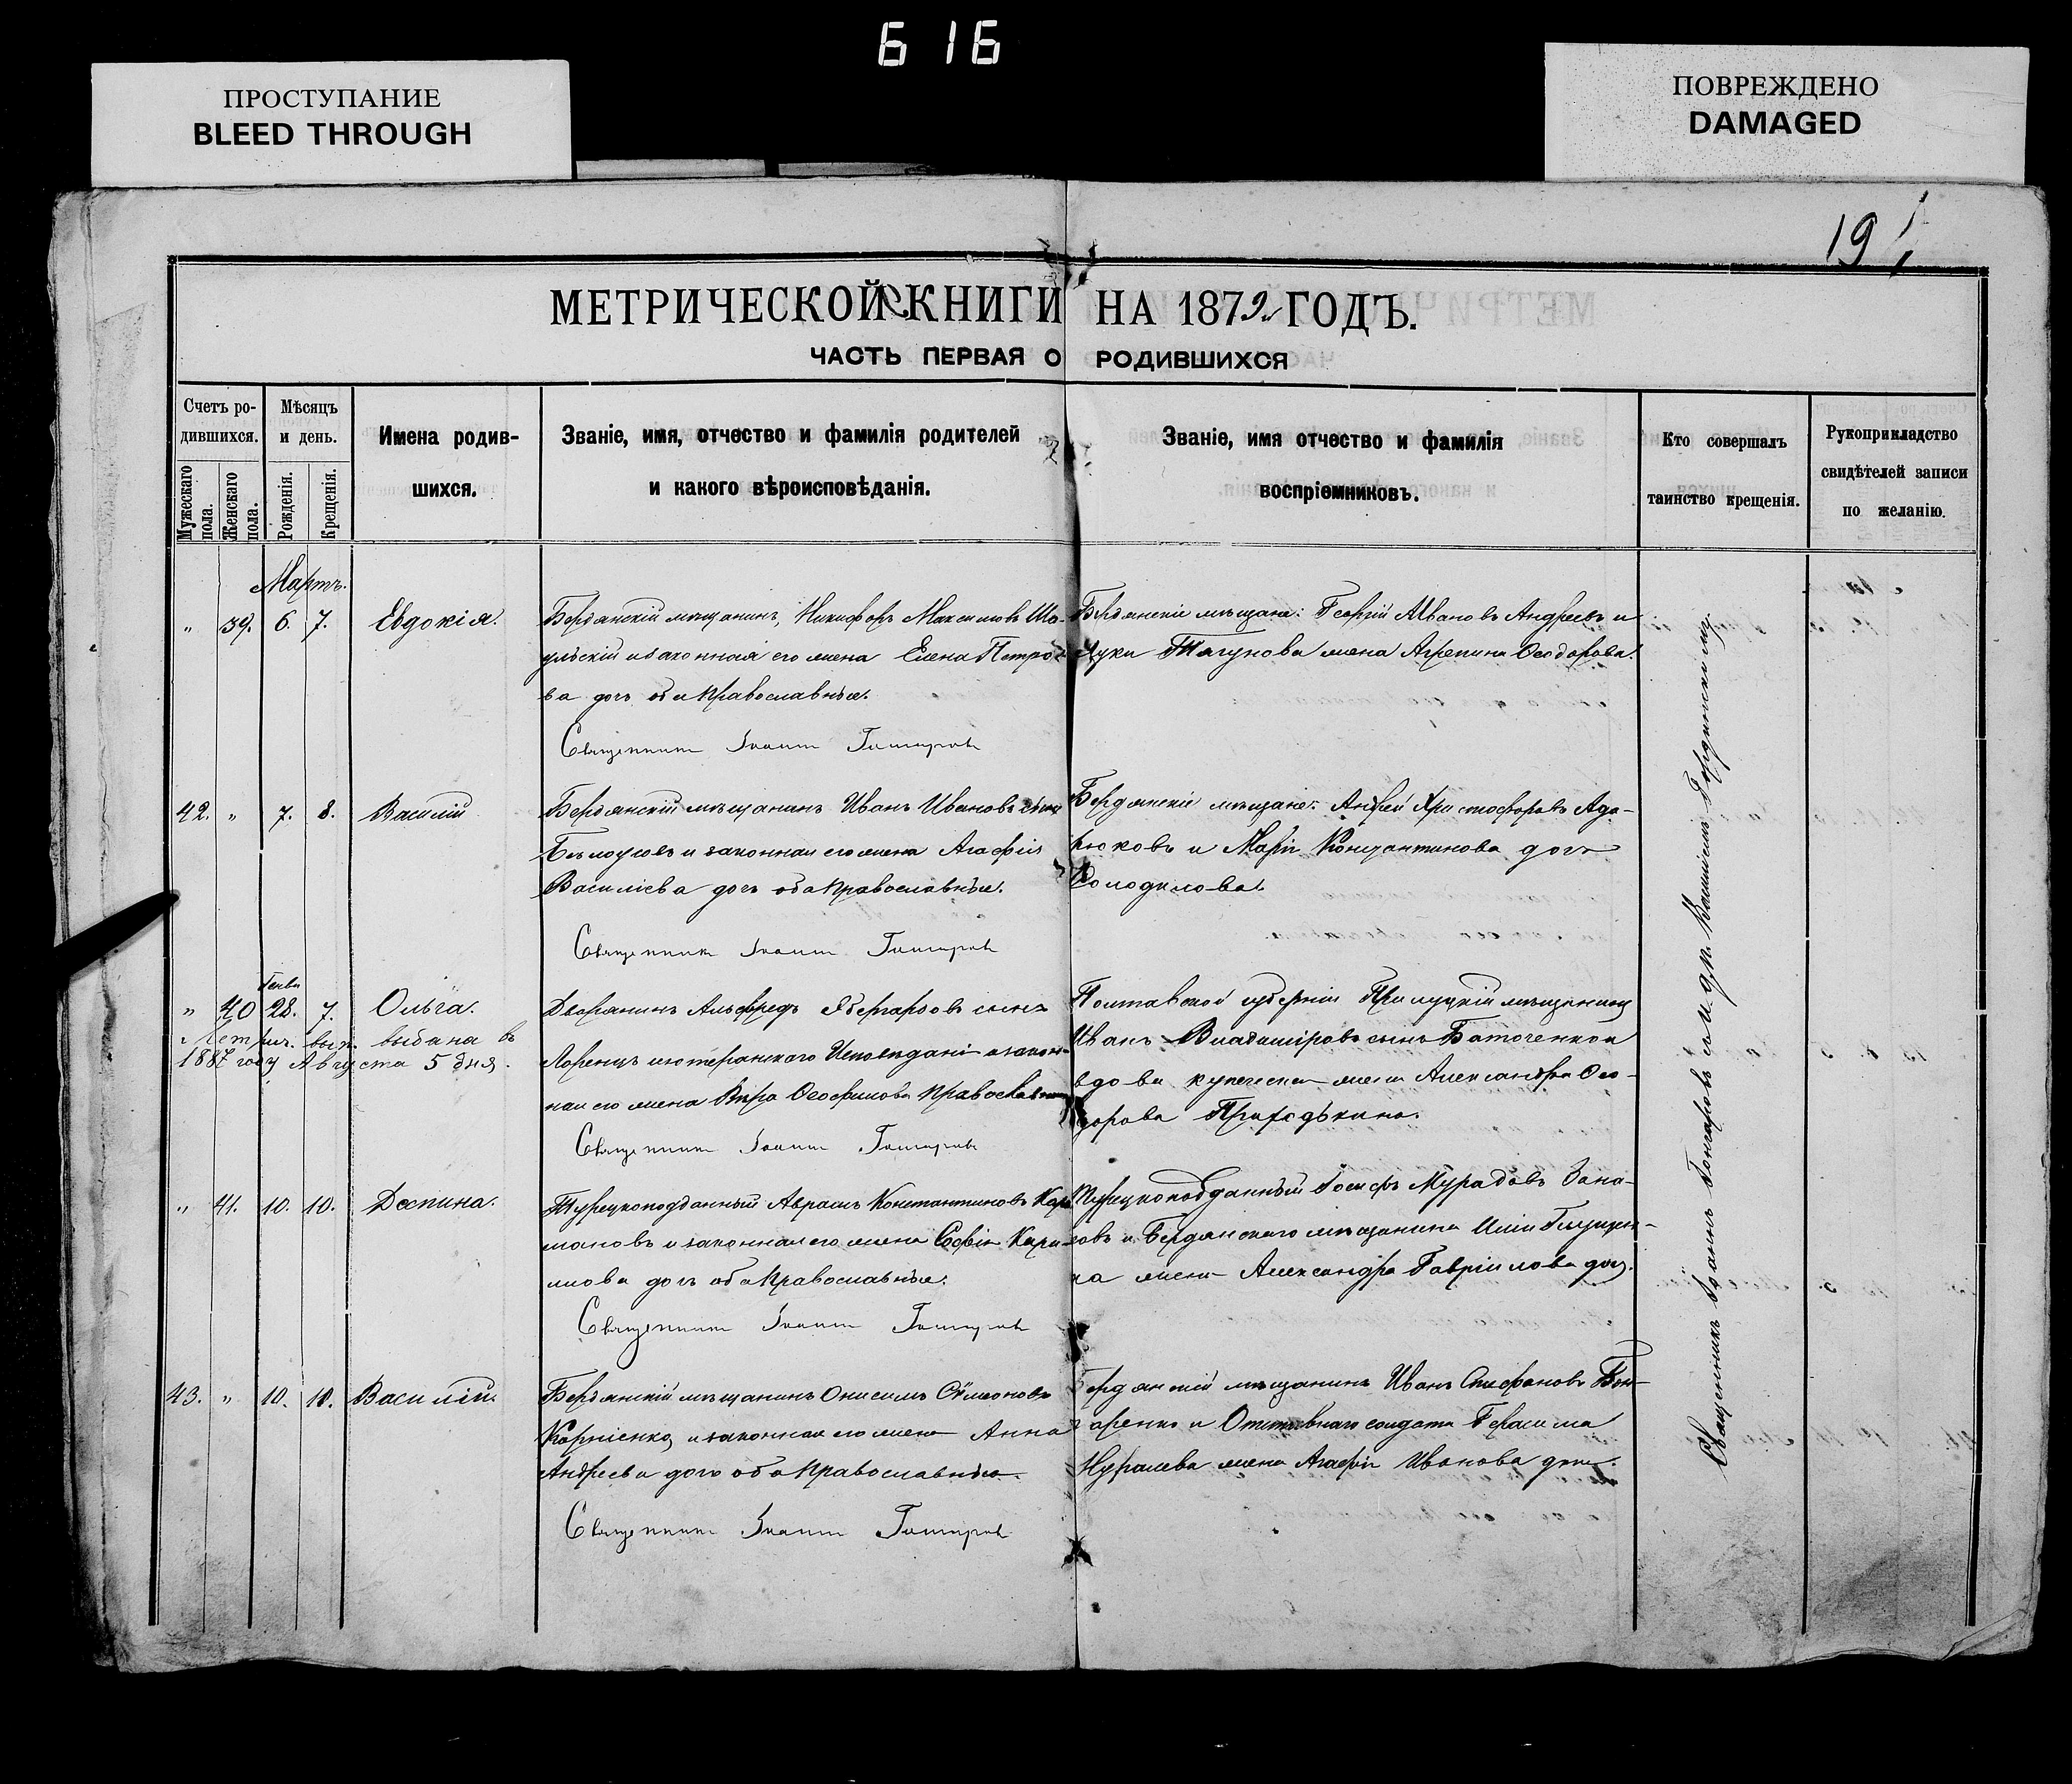 6 16
ПРОСТУПАНИЕ
BLEED THROUGH
ПОВРЕЖДЕНО
DAMAGED
19
МЕТРИЧЕСКОЙ КНИГИ НА 1879 ГОДЪ.
ЧАСТЬ ПЕРВАЯ О РОДИВШИХСЯ
Счетъ ро-
дившихся.
Мужескаго пола.
Женскаго пола.
Мѣсяцъ
и день.
Рожденія.
Крещенія.
Имена родив-
шихся.
Званіе, имя, отчество и фамилія родителей
и какого вѣроисповѣданія.
Званіе, имя отчество и фамилія
воспріемниковъ.
Кто совершалъ
таинство крещенія.
Рукоприкладство
свидѣтелей записи
по желанію.
Мартъ.
" 39. 6. 7. Евдокія.
Бердянскій мѣщанинъ, Никифоръ Максимовъ Шо-
ульскій и законная его жена Елена Петро-
ва дочь оба православные.
Священникъ Іоаннъ Гончаровъ
Бердянскіе мѣщане: Георгій Ивановъ Андреевъ и
Луки Тагунова жена Агрепина Ѳеодорова.
42. " 7. 8. Василій
Бердянскій мѣщанинъ Иванъ Ивановъ сынъ
и законная его жена Агафія
Василіева дочь оба православные.
Священникъ Іоаннъ Гончаровъ
Бердянскіе мѣщане: Андрей Христофоровъ Ада-
рюковъ и Марія Константинова дочь
Солодилова.
" 40 28. 7. Ольга.
Метрич. вып. выдана въ
1887 году Августа 5 дня.
Дворянинъ Альфредъ Эбергардовъ сынъ
Лоренцъ лютеранскаго исповѣданія и закон-
ная его жена Вѣра Ѳеофилова православная
Священникъ Іоаннъ Гончаровъ
Полтавской губерніи Прилуцкій мѣщанинъ
Иванъ Владиміровъ сынъ и
вдова купеческая жена Александра Ѳео-
дорова Приходькина.
" 41. 10. 10. Деспина.
Турецкоподданный Авраамъ Константиновъ Кара-
мановъ и законная его жена Софія Кири-
лова дочь оба православные.
Священникъ Іоаннъ Гончаровъ
Турецкоподданный Іосифъ Мурадовъ
и Бердянскаго мѣщанина Иліи Глущен-
ка жена Александра Гавріилова дочь.
43. " 10. 10. Василій.
Бердянскій мѣщанинъ Онисимъ Симеоновъ
Корніенко и законная его жена Анна
Андреева дочь оба православные.
Священникъ Іоаннъ Гончаровъ
Бердянскій мѣщанинъ Иванъ Стефановъ Бон-
даренко и Отставнаго солдата Герасима
Журалева жена Агафія Иванова дочь.
Священникъ Іоаннъ Гончаровъ съ